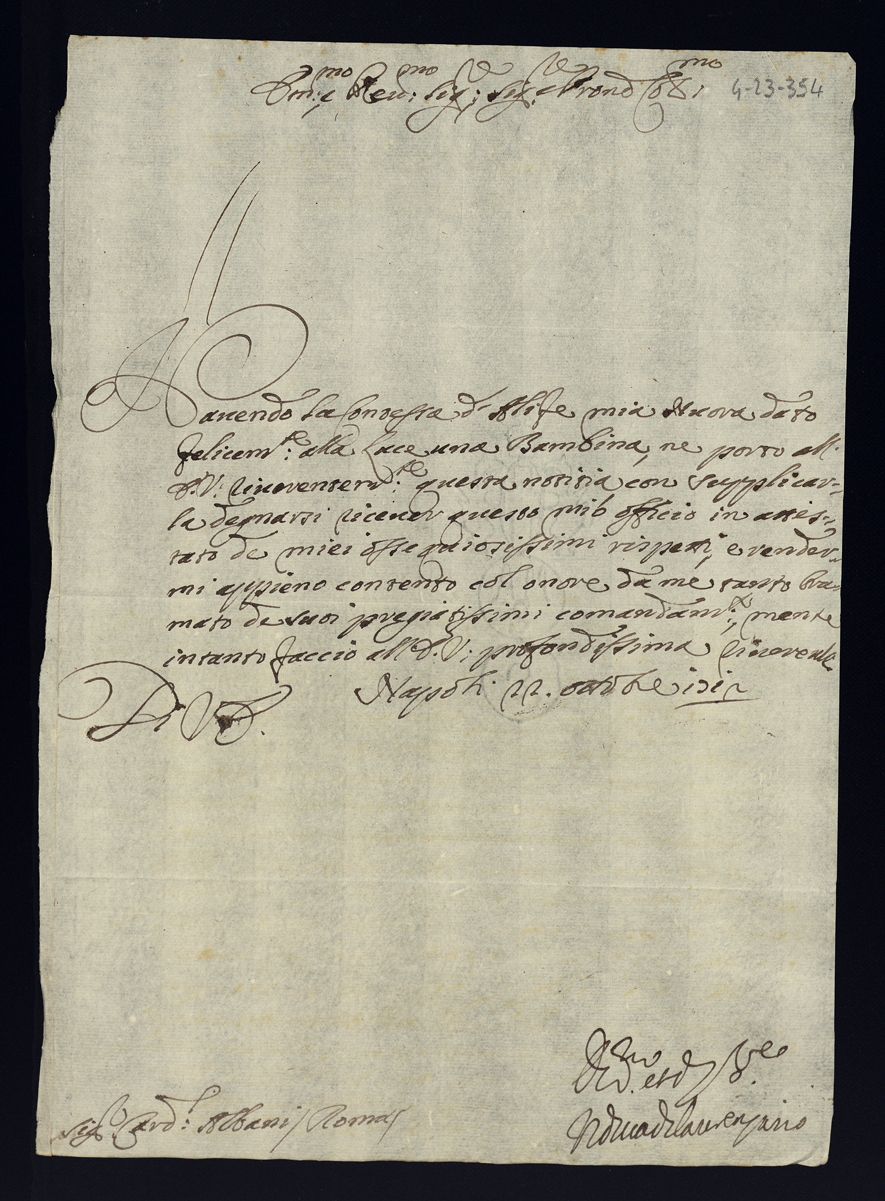 Em:mo e Reu:mo Sig:re Sig:re e Pron Col:mo
4-23-354
Hauendo la Contessa d'Alife mia Nuora dato
felicem:te alla Luce una Bambina, ne porto all'
E.V: riuerentem:te questa notitia con supplicar=
la degnarsi riceuer questo mio officio in attes=
tato de miei ossequiosissimi rispetti, e render=
mi appieno contento col onore da me tanto bra=
mato de suoi pregiatissimi comandam:ti, mentre
intanto faccio all'E.V: profondissima riuerenza
Napoli 22. ottobre
Di V.E.
Sig:r Card:l Albani / Roma /
Il Duca di Laurenzano